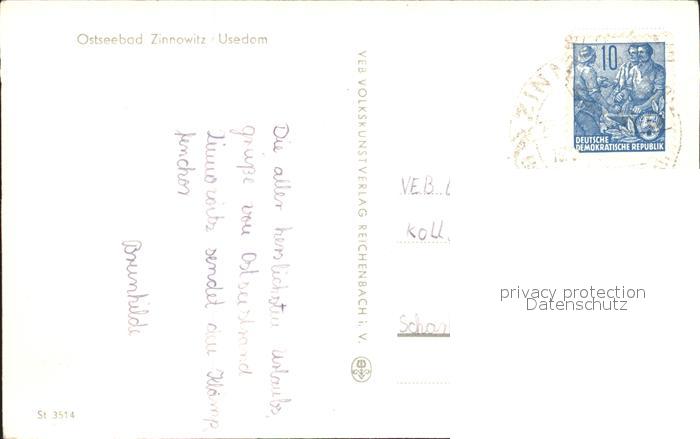 Ostseebad Zinnowitz / Usedom
Die aller herzlichsten Urlaubs,
grüße von Ostseestrand
Zinnowitz sendet das Klämp
fenchor
Brunhilde
VEB VOLKSKUNSTVERLAG REICHENBACH i. V.
St 3514
10
DEUTSCHE
DEMOKRATISCHE REPUBLIK
ZINN
VEB
Koll.
privacy protection
Datenschutz